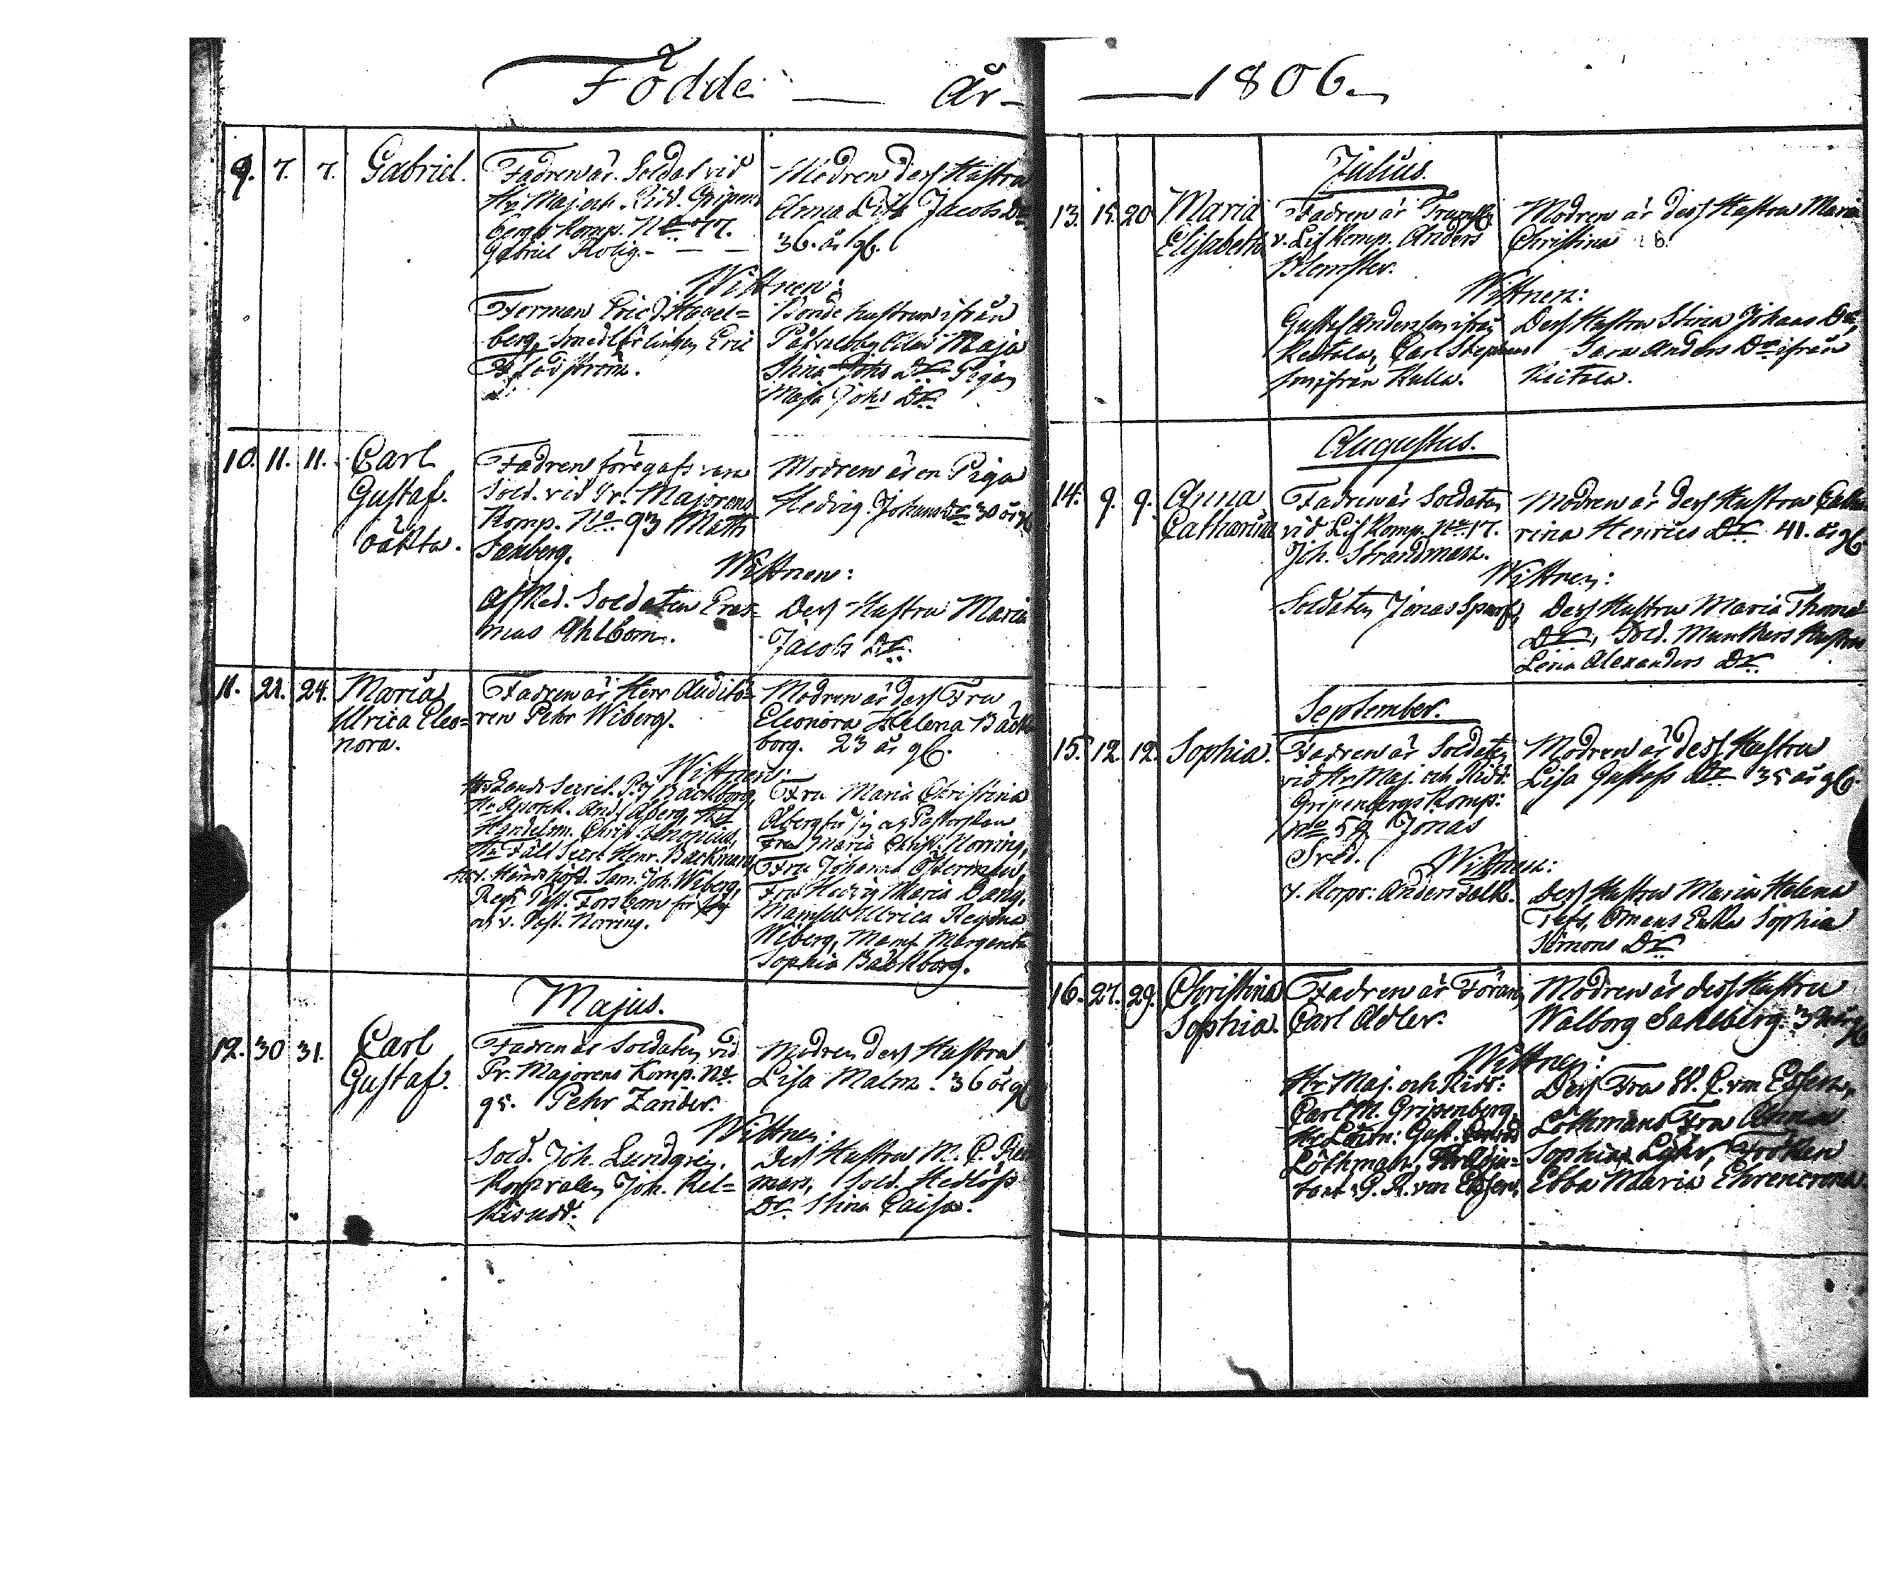 Födde — År —
9. 7. 7. Gabriel.
Fadren är Soldat vid
Hr Maj. och Ridd. Gripen-
bergs Komp. No 77.
Gabriel Rolig. — — —
Modren dess Hustru
Anna Lisa Jacobs Dr
36. år gl.
Wittnen:
Forman Eric Hagel=
berg, Smedlärlingen Eric
Bladström.
Bonde hustrun ifrån
Maja
Stina Johs Dr Pigan
Maja Johs Dr.
10. 11. 11. Carl
Gustaf.
oäkta.
Fadren föregafs vara
Sold. vid Pr. Majorens
Komp. No 93 Math
Saxberg.
Modren är en Piga
Hedvig Johans Dr 30 år gl
Wittnen:
Afsked. Soldaten Eras=
mus Ahlbom.
Dess Hustru Maria
Jacobs Dr.
11. 22. 24. Maria
Ulrica Eleo=
nora.
Fadren är Herr Auditö=
ren Pehr Wiberg.
Modren är dess Fru
Eleonora Helena Bäck
borg. 23 år gl.
Wittnen:
Hr Lands Secret. P. J Backborg,
Hr Apothek. And. Aberg, Hr
Handelsm. Christ.
Hr Fält Secret Henr. Backman,
Hr v. Häradshöfd. Sam. Joh. Wiberg,
Past. Forsbom för sig
och v. Past. Norring.
Fru Maria Christina
Åberg för sig och Pastorskan
Fru Maria Christ. Norring,
Fru Johanna Österman,
Fru Hedvig Maria Dang,
Mamsell Ulrica Regina
Wiberg, Mams. Margareta
Sophia Bäckborg.
Majus.
12. 30 31. Carl
Gustaf.
Fadren är Soldaten vid
Pr. Majorens Komp. No
95. Pehr Zander.
Modren dess Hustru
Lisa Malm. 36 år gl
Wittnen:
Sold. Joh. Lundgren,
Korpralen Joh. Rel=
Dess Hustru M. C.
mars, Sold. Hedlöfs
Dr. Stina Caisa.
— 1806. —
Julius.
13. 15. 20 Maria
Elisabeth
Fadren är Trumsl.
v. Lif Komp. Anders
Blomster.
Modren är dess Hustru Maria
Christina
Wittnen:
Gustaf Andersson ifrån
Keitala, Carl Stephans
son ifrån Kulla.
Dess Hustru Stina Johans Dr,
Sara Anders Dr ifrån
Keitala.
Augustus.
14. 9. 9. Anna
Catharina
Fadren är Soldaten
vid Lif Komp. No 17.
Joh. Strandman.
Modren är dess Hustru Catha
rina Henrics Dr 41. år gl.
Wittnen:
Soldaten Jonas Sparf,
Dess Hustru Maria Thomæ
Dr, Sold. Munthers Hustru
Lena Alexanders Dr.
September.
15. 12. 12. Sophia.
Fadren är Soldaten
vid Hr Maj. och Ridd.
Gripenbergs Komp:
No 59 Jonas
Modren är dess Hustru
Lisa Gustafs Dr 35 år gl.
Wittnen:
v. Korpr. Anders Falk.
Dess Hustru Maria Helena
Enka Sophia
Simons Dr
16. 27. 29. Christina
Sophia.
Fadren är Förarn
Carl Adler.
Modren är dess Hustru
Walborg Sahlberg.
Wittnen:
Hr Maj. och Ridd:
Carl M. Gripenberg,
Hr Löitn: Gust. Conrad
Löthman, Hr Adju=
tant G. R. von Essen,
Dess Fru W. C. von Essen,
Löthmans Fru Anna
Sophia Fröken
Ebba Maria Ehrencrona.